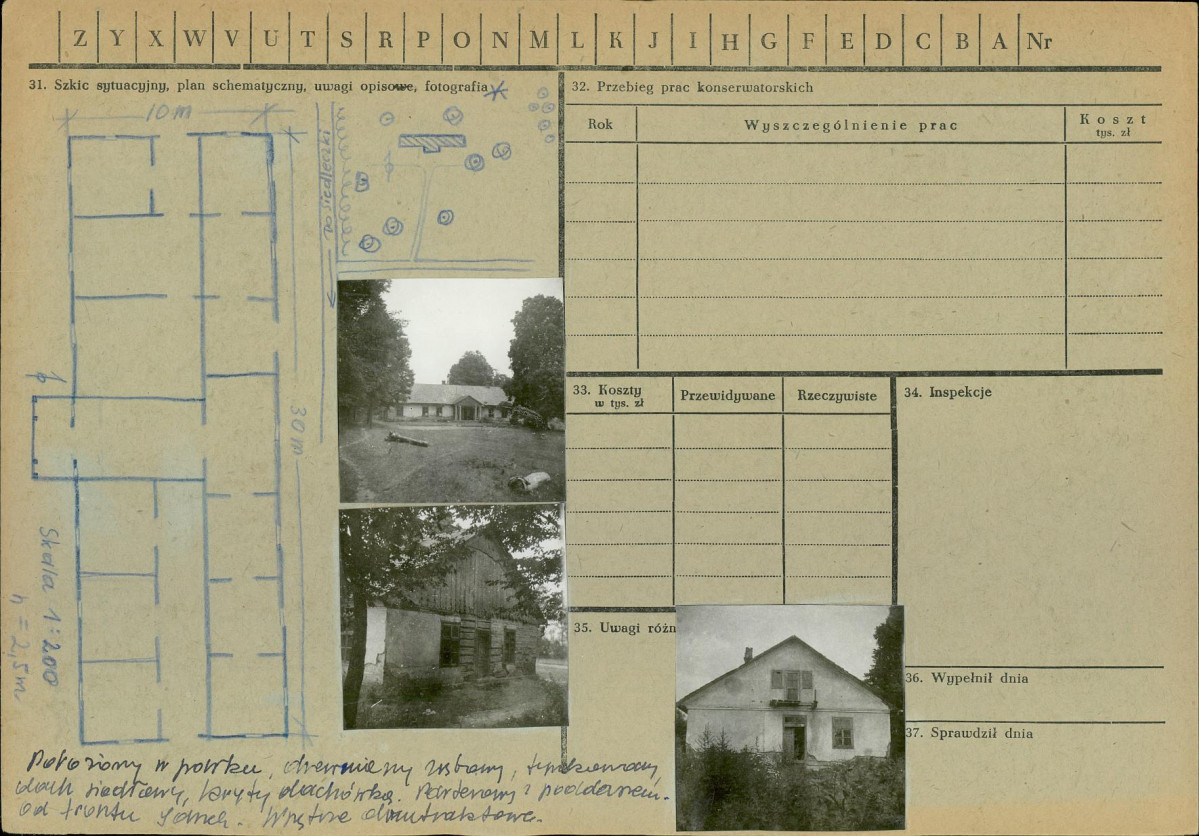 Z Y X W V U T S R P O N M L K J I H G F E D C B A Nr
31. Szkic sytuacyjny, plan schematyczny, uwagi opisowe, fotografia
10 m
do siedleczki
30 m
Skala 1:200
h = 2,5 m
Położony w parku, drewniany, tynkowany,
dach siodłowy, kryty dachówką. Parterowy z poddaszem.
od frontu ganek. Wnętrze dwutraktowe.
32. Przebieg prac konserwatorskich
Rok
Wyszczególnienie prac
Koszt
tys. zł
33. Koszty
w tys. zł
Przewidywane
Rzeczywiste
34. Inspekcje
35. Uwagi różn
36. Wypełnił dnia
37. Sprawdził dnia